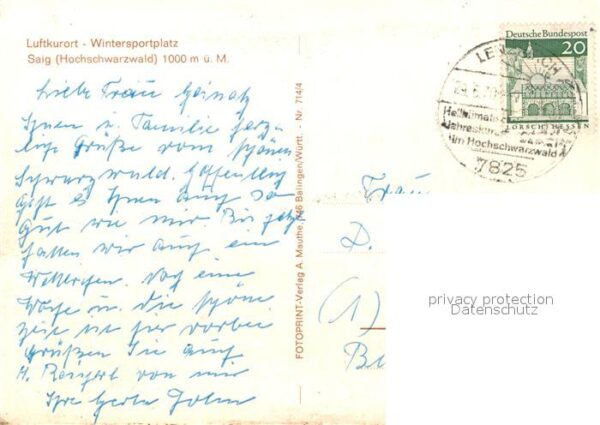 Luftkurort - Wintersportplatz
Saig (Hochschwarzwald) 1000 m ü. M.
Liebe Frau
Ihnen u. Familie herz-
liche Grüße vom schönen
Schwarzwald. Hoffentlich
geht es Ihnen auch so
gut wie mir. Bis jetzt
hatten wir auch ein
Noch eine
Woche u. die schöne
Zeit ist hier vorbei
Grüßen Sie auch
H. von mir
Ihre Herta
FOTOPRINT-Verlag A. Mauthe, 746 Balingen/Württ. - Nr. 714/4
Deutsche Bundespost
20
LORSCH/HESSEN
Heilklimatischer
Jahreskurort
im Hochschwarzwald
7825
Frau
D.
(1)
privacy protection
Datenschutz